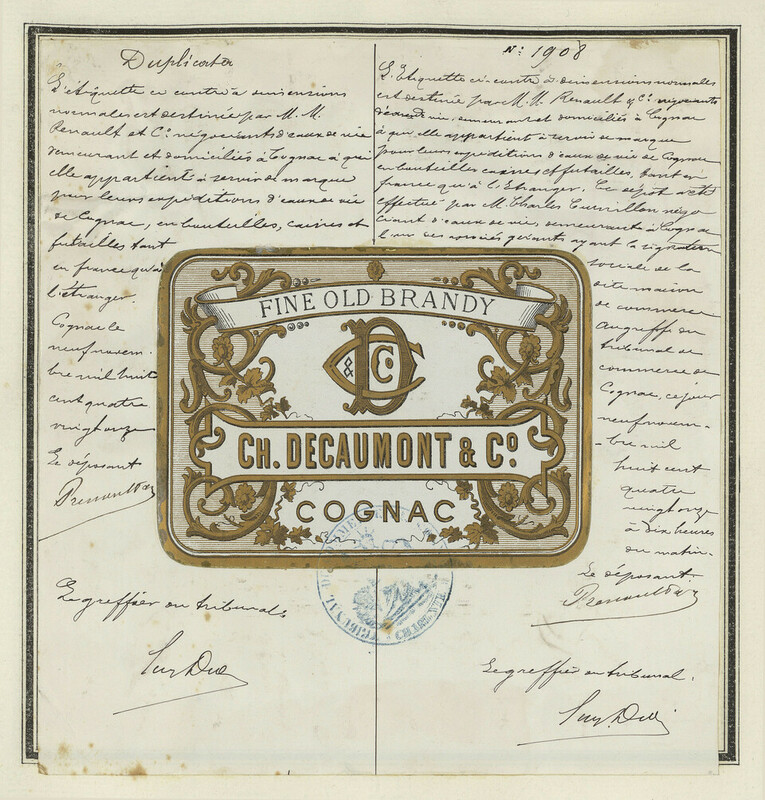 Duplicata
L'étiquette ci contre à dimensions
normales est destinée par M. M.
Renault et Cie négociants d'eaux de vie
demeurant et domiciliés à Cognac à qui
elle appartient à servir de marque
pour leurs expéditions d'eaux de vie
de Cognac, en bouteilles, caisses et
futailles tant
en france qu'à
l'étranger.
Cognac le
neuf novem-
bre mil huit
cent quatre
vingt onze
Le déposant
Renault &
Le greffier du tribunal.
No: 1908
L'Etiquette ci-contre à dimensions normales
est destinée par M. M. Renault & Cie négociants
d'eaux de vie, demeurant et domiciliés à Cognac
à qui elle appartient à servir de marque
pour leurs expéditions d'eaux de vie de Cognac
en bouteilles caisses et futailles, tant en
france qu'à l'Etranger. Ce dépot a été
effectué par M. Charles négo
ciant d'eaux de vie, demeurant à Cognac
l'un des associés gérants ayant la signature
sociale de la
dite maison
de commerce
au greffe du
tribunal de
commerce de
Cognac, ce jour
neuf novem-
-bre mil
huit cent
quatre
vingt onze
à dix heures
du matin.
Le déposant.
Renault &
Le greffier du tribunal.
FINE OLD BRANDY
D C & Co
CH. DECAUMONT & Co.
COGNAC